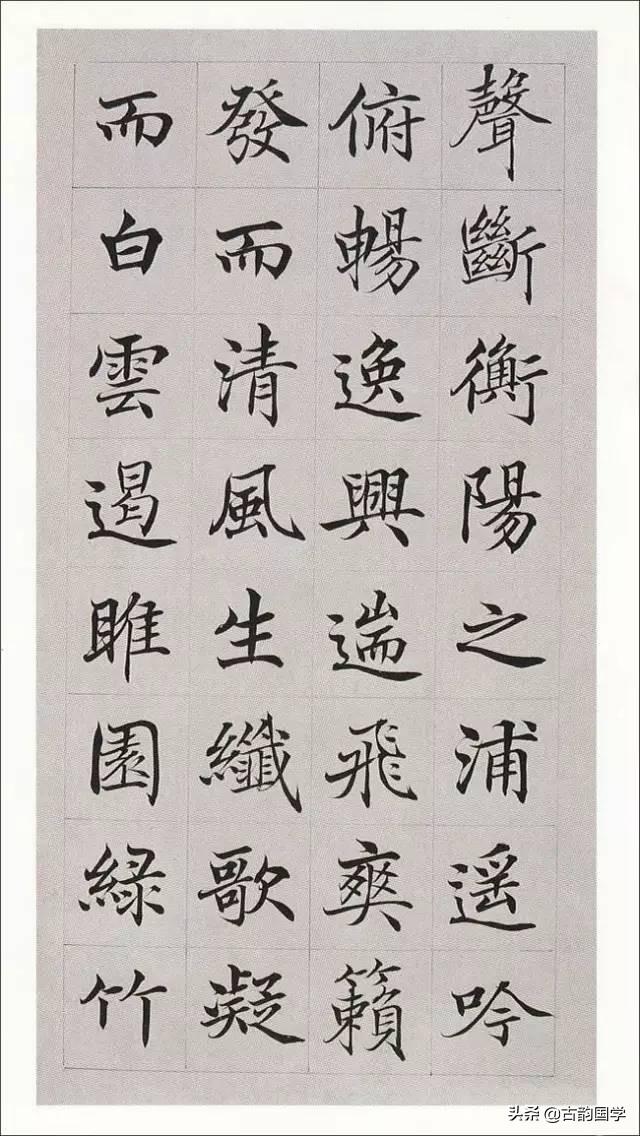 聲斷衡陽之浦遥吟
俯暢逸興遄飛爽籟
發而清風生纖歌凝
而白雲遏睢園緑竹
头条 @古韵国学